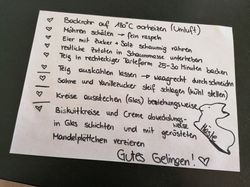 Backrohr auf 180°C vorheizen (Umluft)
Möhren schälen → fein raspeln
Eier mit Zucker + Salz schaumig rühren
restliche Zutaten in Schaummasse unterheben
Teig in rechteckiger Tarteform 25-30 Minuten backen
Teig auskühlen lassen → waagrecht durchschneiden
Sahne und Vanillezucker steif schlagen (kühl stellen)
Kreise ausstechen (Glas) beziehungsweise
Biskuitkreise und Creme abwechslungsweise
in Glas schichten und mit gerösteten
Mandelplättchen verzieren
Gutes Gelingen!